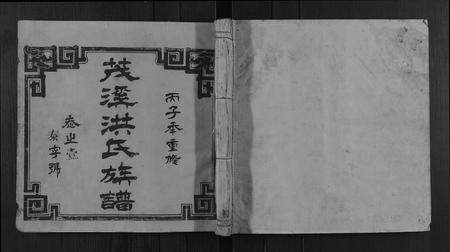 丙子年重修
茂溪洪氏族譜
卷之壹
泰字號